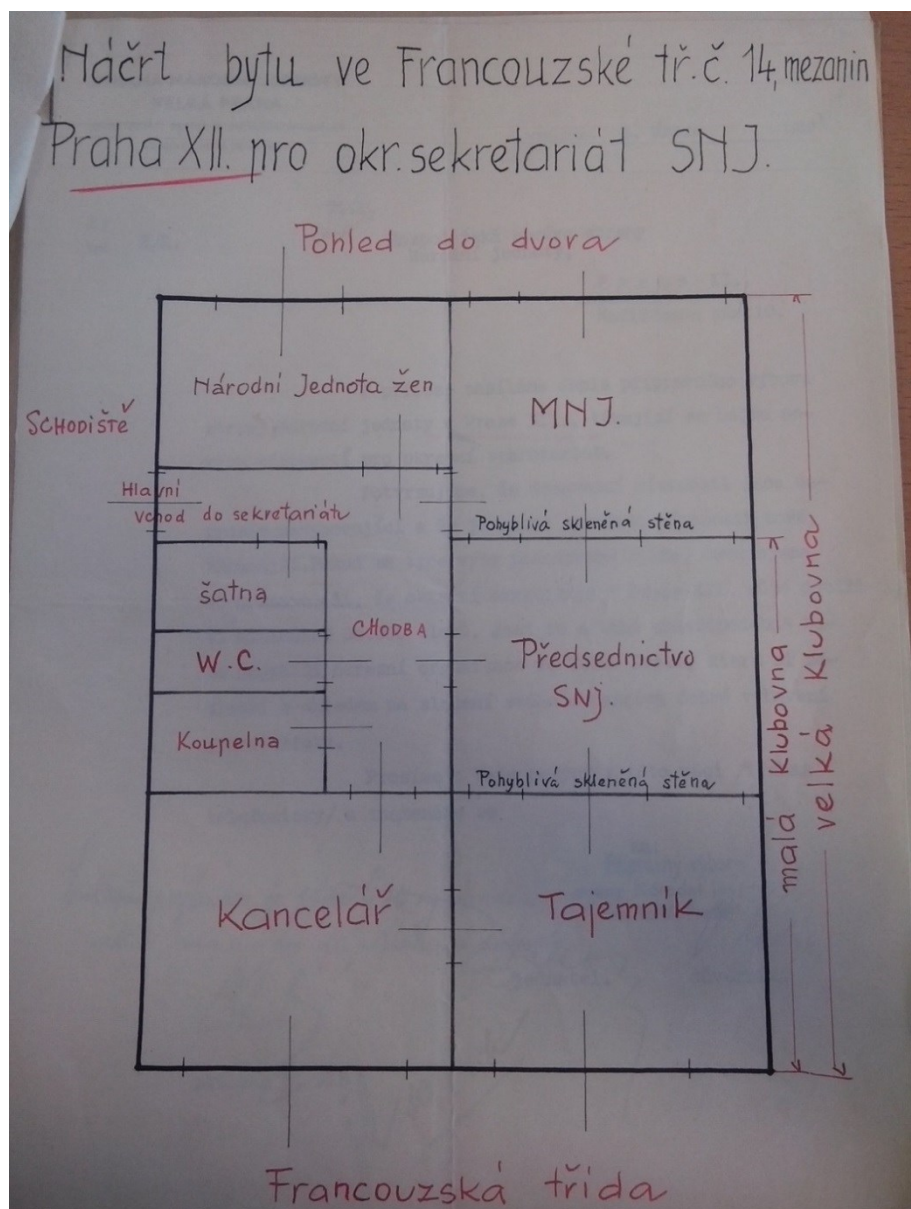 Náčrt bytu ve Francouzské tř. č. 14, mezanin
Praha XII. pro okr. sekretariát SNJ.
Pohled do dvora
Národní Jednota žen
MNJ.
SCHODIŠTĚ
Hlavní
vchod do sekretariátu
Pohyblivá skleněná stěna
šatna
CHODBA
W.C.
Předsednictvo
SNJ.
Koupelna
Pohyblivá skleněná stěna
malá Klubovna
velká Klubovna
Kancelář
Tajemník
Francouzská třída